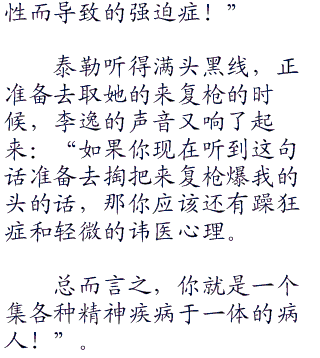 性而导致的强迫症！”
泰勒听得满头黑线，正
准备去取她的来复枪的时
候，李逸的声音又响了起
来：“如果你现在听到这句
话准备去掏把来复枪爆我的
头的话，那你应该还有躁狂
症和轻微的讳医心理。
总而言之，你就是一个
集各种精神疾病于一体的病
人！”。